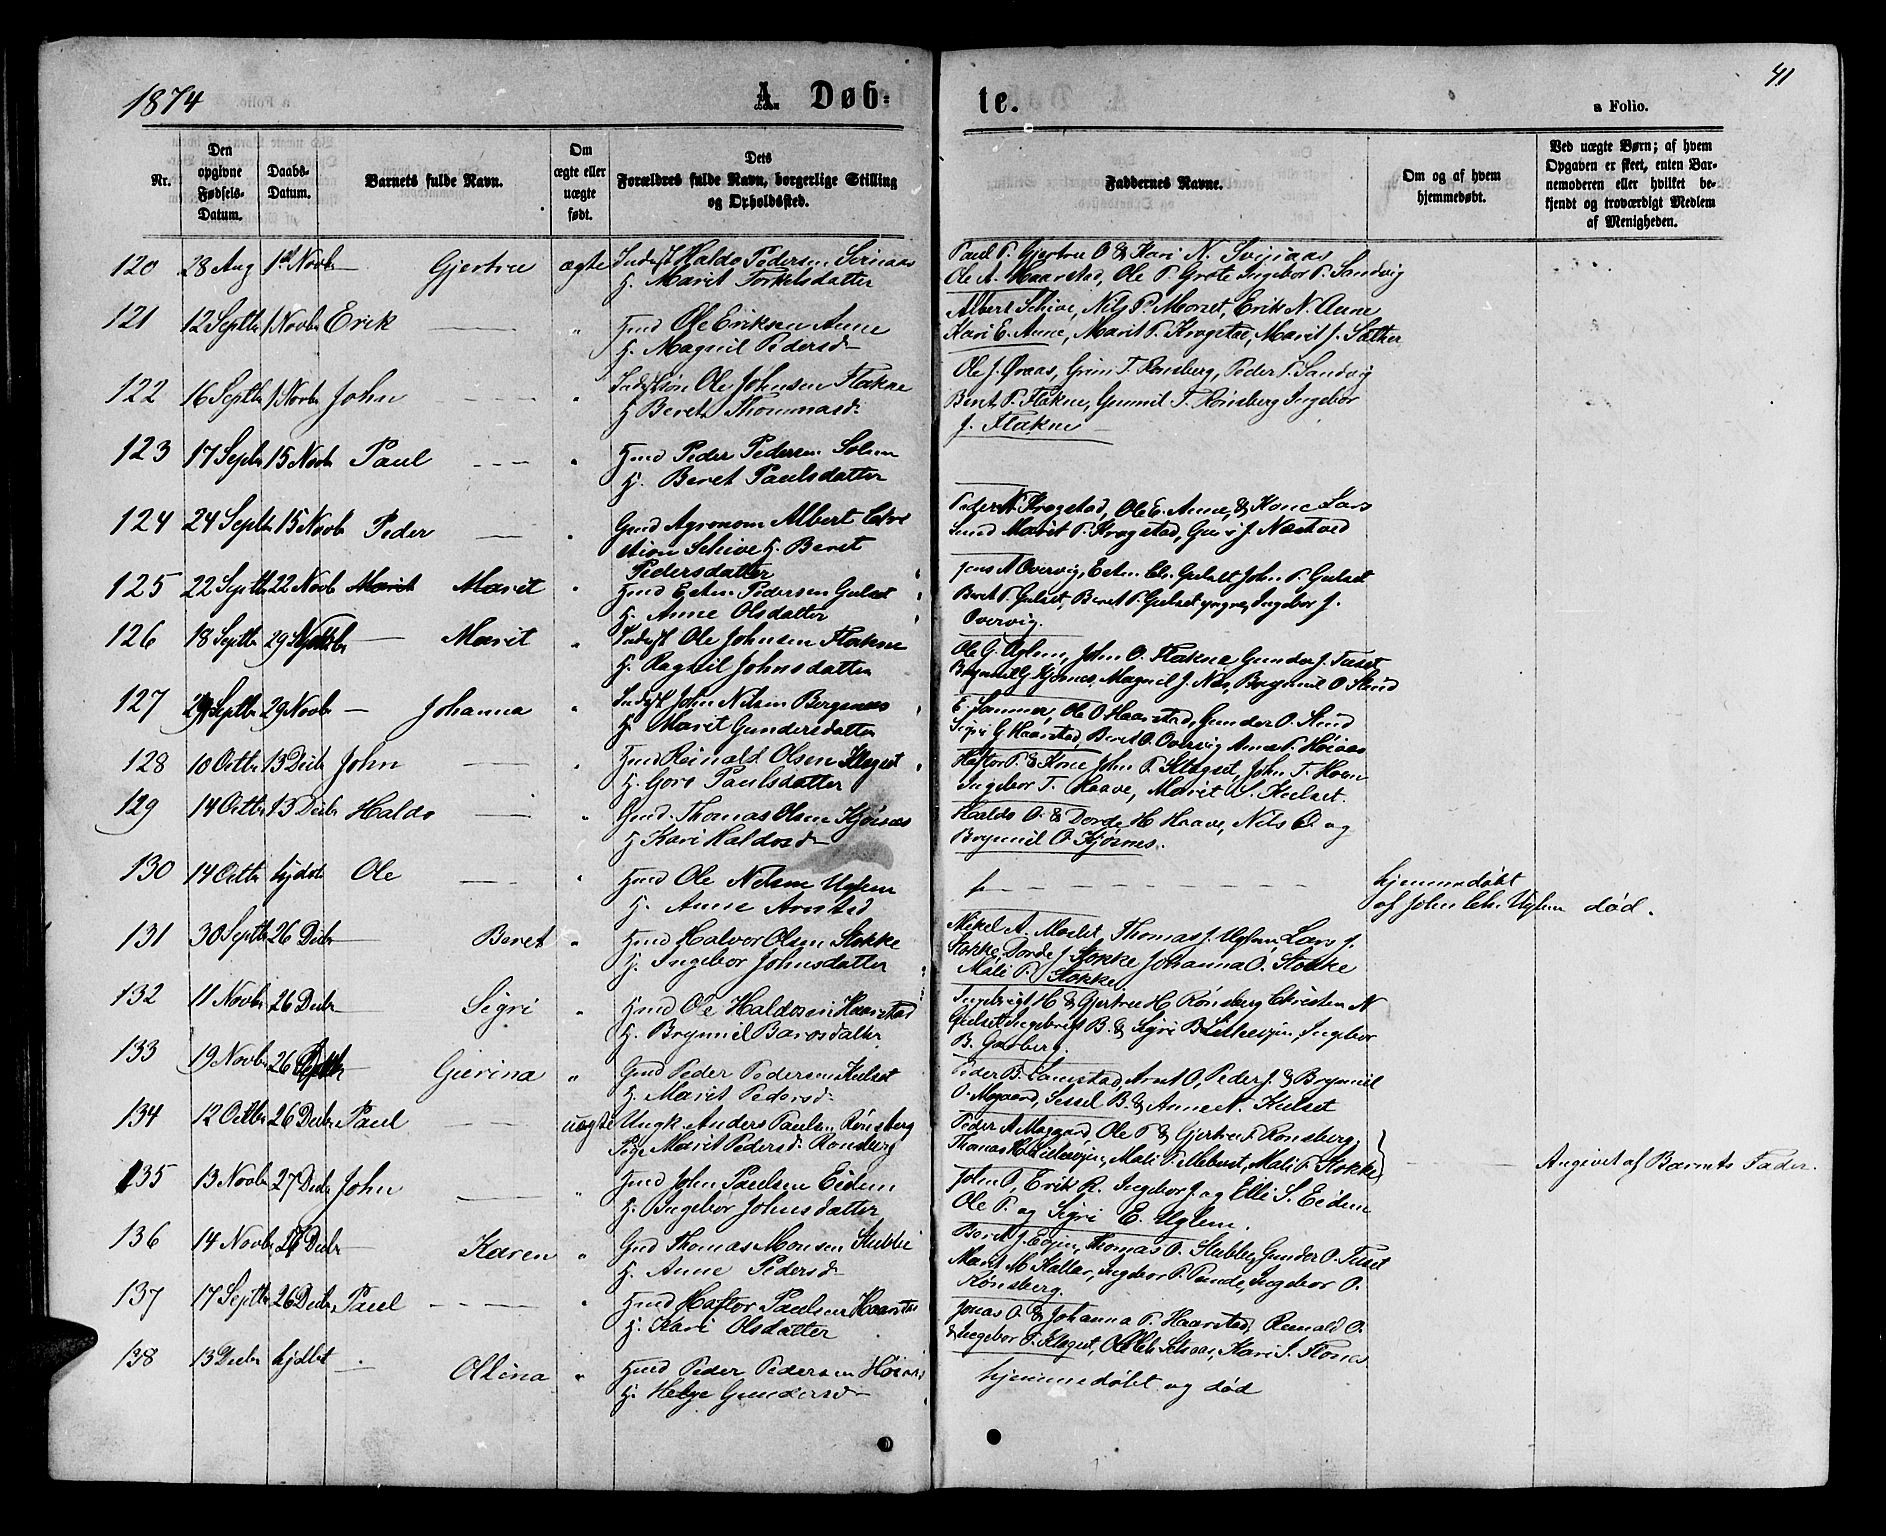 1874
A. Døb-
te.
41
a Folio.
Nr.
Den opgivne Fødsels-Datum.
Daabs-Datum.
Barnets fulde Navn.
Om ægte eller uægte født.
Dets Forældres fulde Navn, borgerlige Stilling og Opholdssted.
Faddernes Navne.
Om og af hvem hjemmedøbt.
Ved uægte Børn; af hvem Opgaven er skeet, enten Barnemoderen eller hvilket bekjendt og troværdigt Medlem af Menigheden.
120 28 Aug 1st Novb — Gjertru ægte Inderst Haldo Pedersen
H. Marit Torkelsdatter
Paul P. Gjertru O & Kari N.
Ole A. Haarstad, Ole P. Grøte Ingebor P. Sandvig
121 12 Septbr 1 Novbr Erik — " Gmd Ole Eriksen Aune
H. Magnil Pedersd
Albert Schive, Nils P. Morset, Erik N. Aune
Kari E. Aune, Marit P. Kragstad, Marit J. Sæther
122 16 Septbr 1 Novbr John — " Ole Johnsen Flakne
H Beret Thommasd.
Ole J. Øvaas, Grim T. Rønsberg, Peder P. Sandvig
Berit P. Flakne, Gunnil T. Rønsberg Ingebor
J. Flakne
123 17 Septbr 15 Novbr Paul — " Hmd Peder Pedersen Solem
H. Beret Paulsdatter
124 24 Septbr 15 Novb Peder — " Gmd Agronom Albert Chri
stian Schive H. Beret
Pedersdatter
Peder N. Kragstad, Ole E. Aune, & Kone Lars
Marit P. Kragstad, Guri J. Næstved
125 22 Septbr 22 Novb Marit Marit " Hmd Esten Pedersen Gulset
H. Anne Olsdatter
Jens A Overvig, Esten Chr. Gulset John P. Gulset
Beret P. Gulset, Beret P. Gulset yngre, Ingebor J.
Overvig.
126 18 Septbr 29 — Marit " Inderst Ole Johnsen Flakne
H. Ragnil Johnsdatter
Ole G. Uglem, John O. Flakne Gunder J. Tuset
Brynnil G Kjøsnes, Magnil J. Næs, Brynnil O. Slind
127 29 Septbr 29 Novbr — Johanna " Inderst John Nilsen Bergsnes
H. Marit Gundersdatter
E. Lommer, Ole O Haarstad, Gunder O. Slind
Sigri G Haarstad, Beret O. Overvig Anne P. Høiaas
128 10 Octbr 13 Decbr John — " Hmd Reinald Olsen Klegset
H. Gore Paulsdatter
Haftor P. & Kone John P. Klegset, John T. Moen
Ingebor T. Haave, Marit S. Kulset.
129 14 Octbr 13 Decbr Haldo — " Gmd. Thomas Olsen Kjøsnes
H Kari Haldosd
Haldo O. & Dorde H Haave, Nils O og
Brynnil O. Kjøsnes.
130 14 Octbr hjdøbt Ole — " Hmd Ole Nilsen Uglem
H. Anne Arnstad
hjemmedøbt
af John Chr. Uglem død.
131 30 Septbr 26 Decbr — Beret " Hmd Halvor Olsen Stokke
H. Ingebor Johnsdatter
Mikel A. Moslet Thomas J. Uglem, Lars J.
Stokke, Dorde J Stokke Johanna O. Stokke
Mali P. Stokke
132 11 Novbr 26 Decbr — Sigri " Hmd Ole Haldosen Haarstad
H. Brynnil Baarsdatter
Ingebrigt H & Gjertru H Rønsberg Christen N
Gulset Ingebrigt B. & Sigri B Litlevgin, Ingebor
B. Garberg.
133 19 Novbr 26 — Gjerina " Gmd Peder Pedersen Kulset
H. Marit Pedersd.
Peder B. Lamstad, Arnt O, Peder J. & Brynnil
O. Mogaard, Sessel B. & Anne N. Kulset
134 12 Octbr 26 Decbr Paul — uægte Ungk. Anders Paulsen Rønsberg
Pige Marit Pedersd. Rønsberg
Peder A Mogaard, Ole P. & Gjertru P. Rønsberg,
Thomas H. Litlevgin, Mali P. Mebust, Mali P. Stokke
Angivet af Barnets Fader.
135 13 Novbr 27 Decbr John — " Hmd John Paulsen Eidem
H. Ingebor Johnsdatter
John O. Erik R. Ingebor J. og Elli S. Eidem
Ole P. og Sigri E. Uglem.
136 14 Novbr 26 Decbr — Karen " Gmd Thomas Monsen Stubbe
H. Anne Pedersd
Beret J. Evjen, Thomas O. Stubbe, Gunder O. Tuset
Marit M Kallar, Ingebor P. Pande, Ingebor O.
Rønsberg.
137 17 Septbr 26 Decbr Paul — " Hmd Haftor Paulsen Haarstad
H. Kari Olsdatter
Jonas O. & Johanna P. Haarstad, Reinald O.
& Ingebor P. Klegset, Ole Kari S. Flones
138 13 Decbr hjdøbt — Oline " Hmd Peder Pedersen Høiaas
H. Helge Gundersd
hjemmedøbt og død